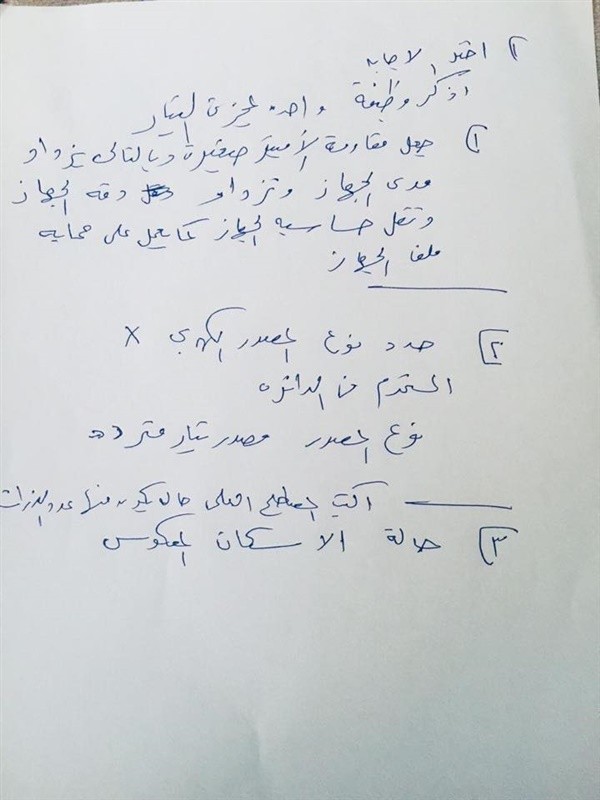 ٢ اختر الاجابه
اذكر وظيفة واحدة لمجزئ التيار
١) جعل مقاومة الأميتر صغيرة وبالتالى يزداد
مدى الجهاز وتزداد دقه الجهاز
وتقل حساسيه الجهاز كما يعمل على حمايه
ملف الجهاز
٢) حدد نوع المصدر الكهربي X
المستخدم فى الدائره
نوع المصدر مصدر تيار متردد
اكتب المصطلح العلمى حاله يكون فيها عدد الذرات
٣) حالة الاسكان المعكوس